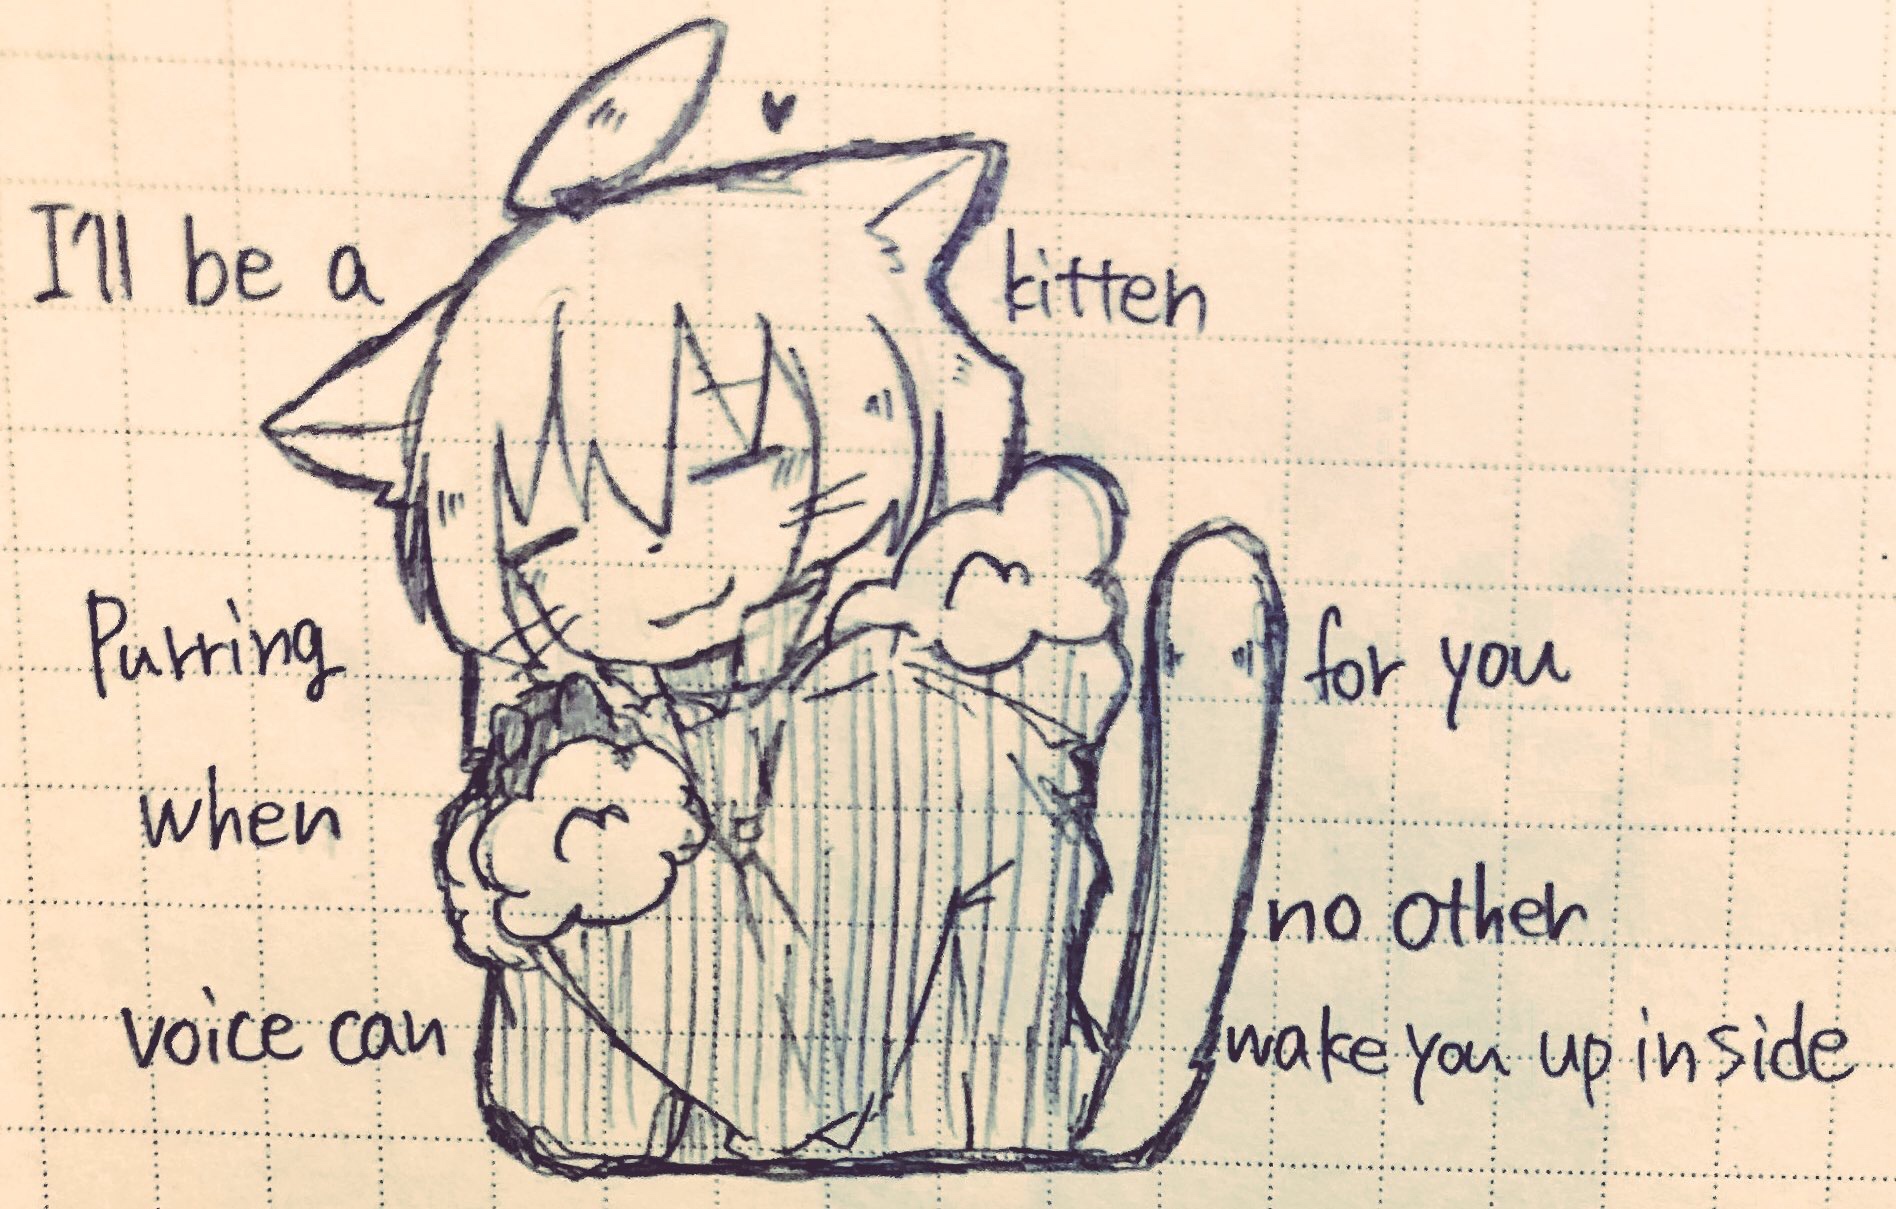 I'll be a kitten
Purring for you
when no other
voice can wake you up inside